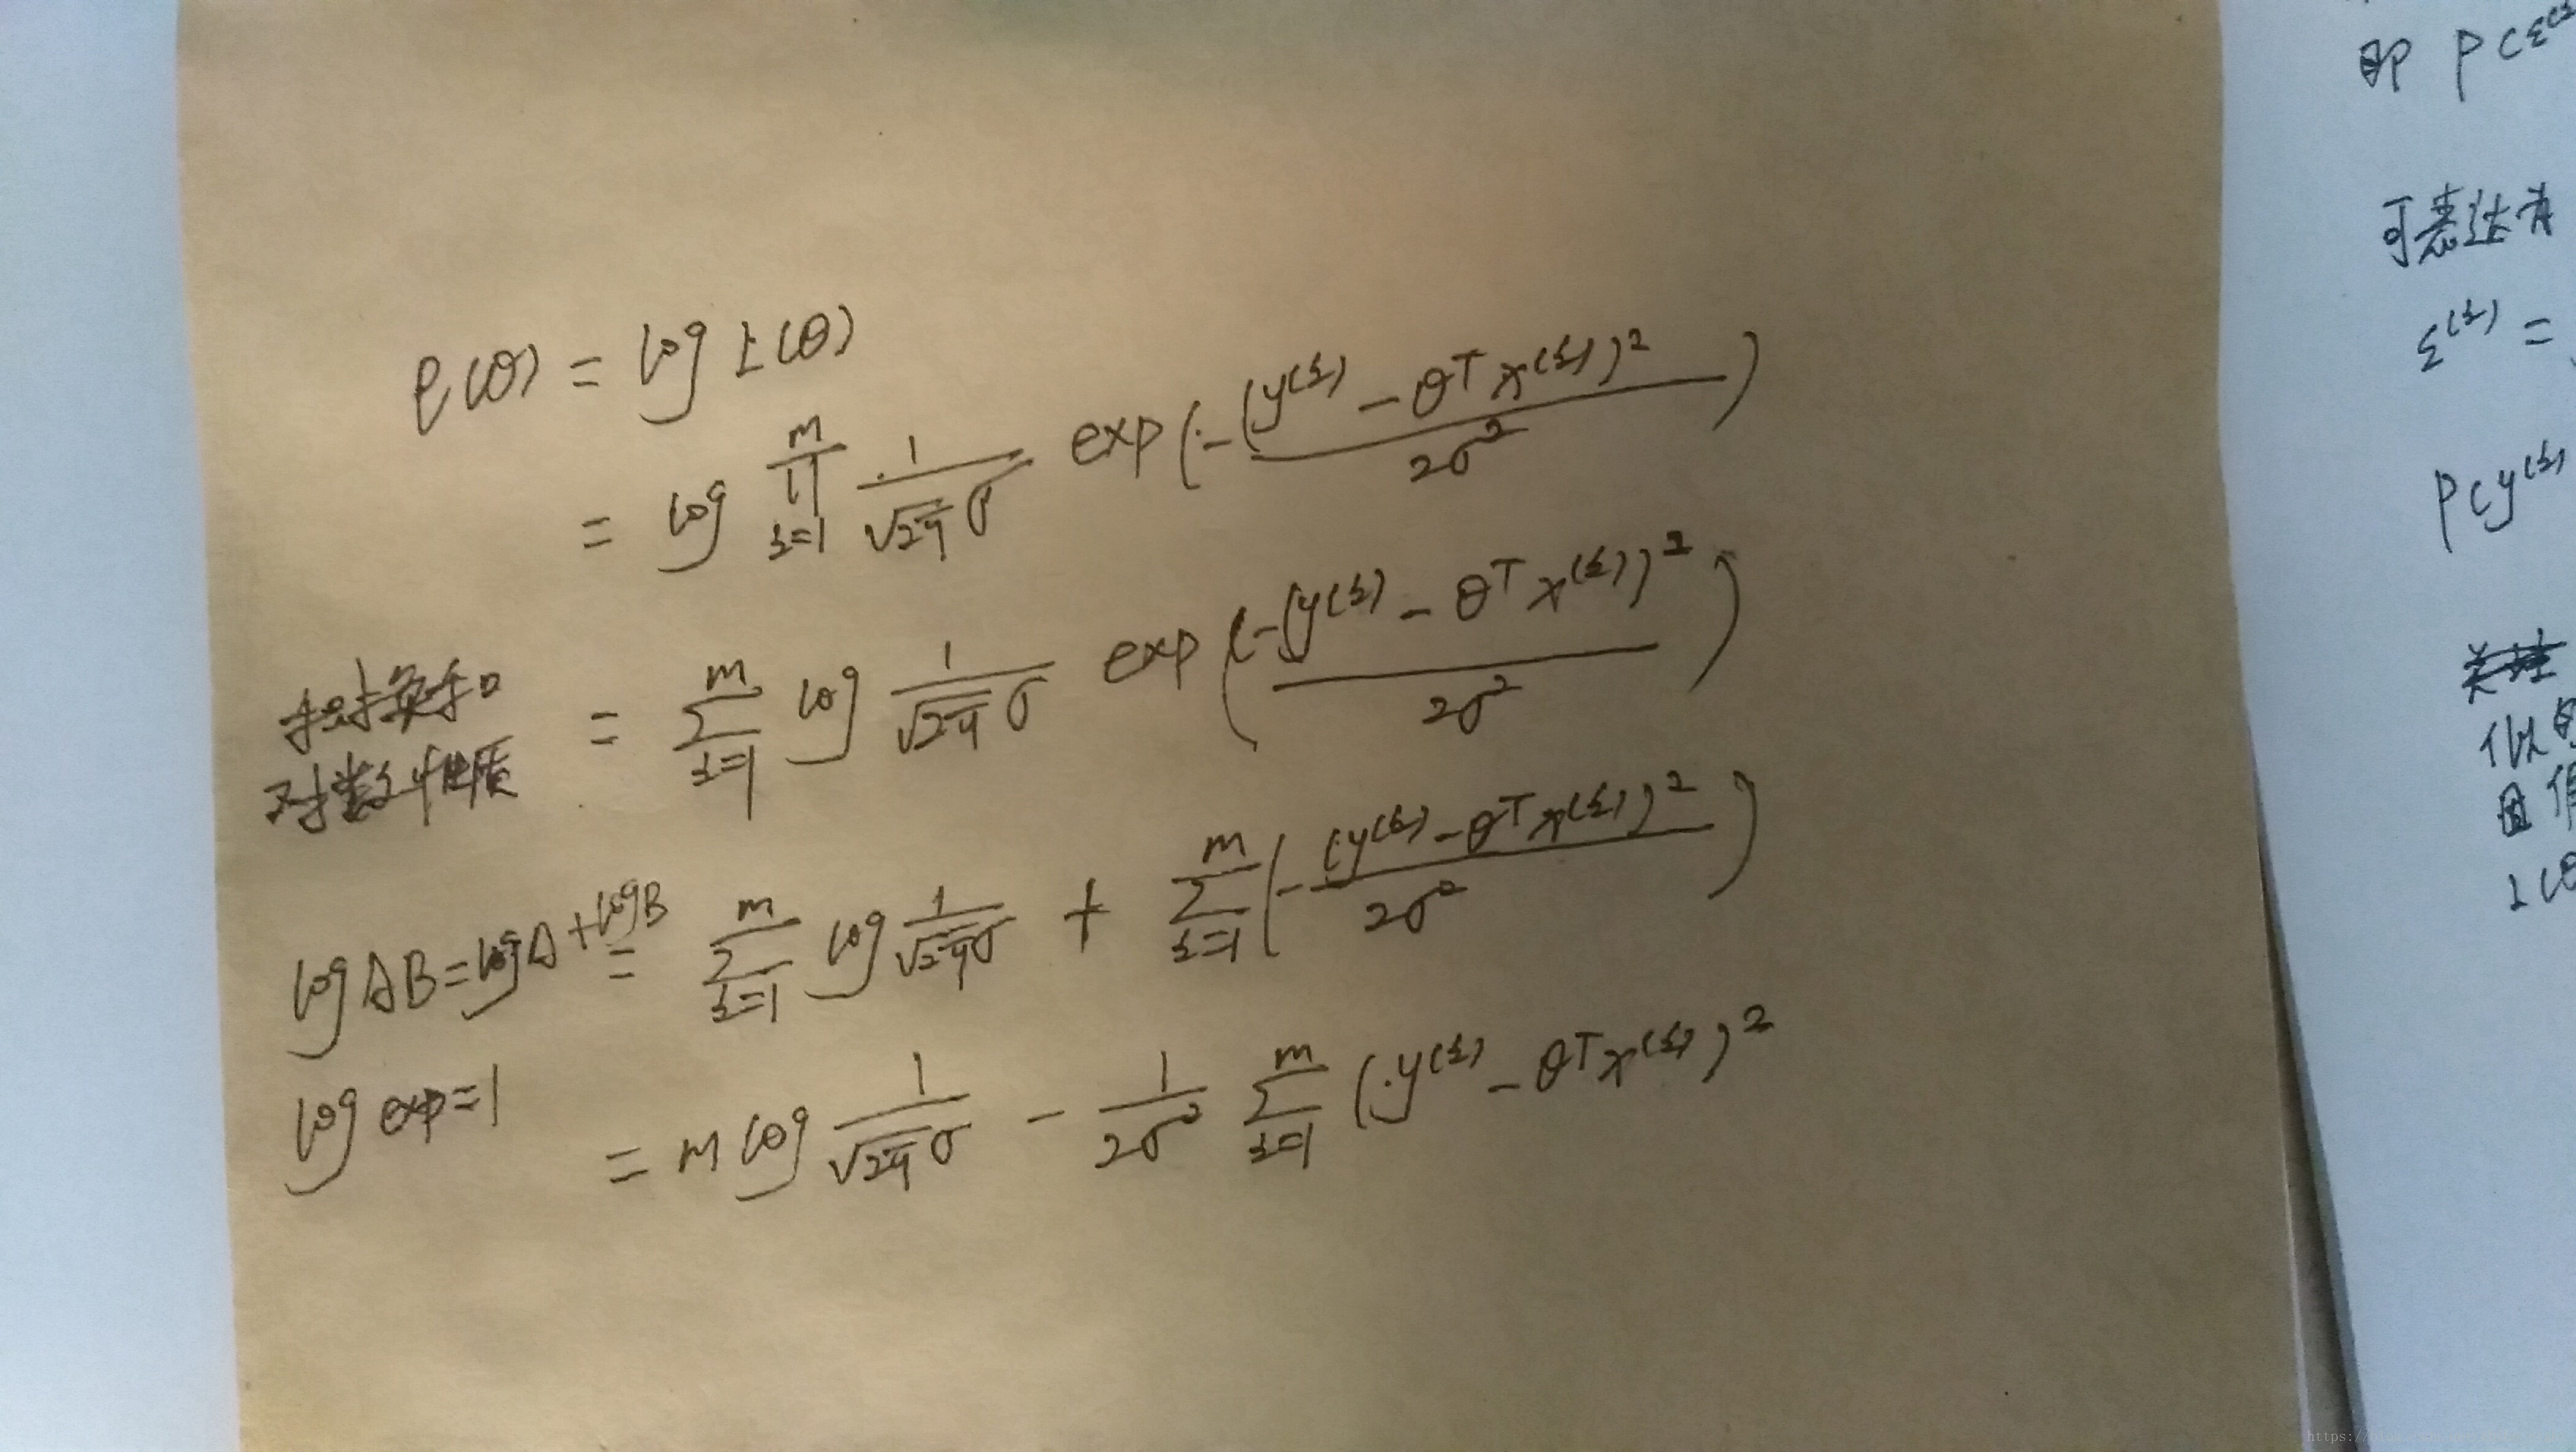 ℓ(θ) = log L(θ)
= log ∏_{i=1}^{m} \frac{1}{\sqrt{2π}σ} exp(-\frac{(y^{(i)} - θ^T x^{(i)})^2}{2σ^2})
乘换和 = ∑_{i=1}^{m} log \frac{1}{\sqrt{2π}σ} exp(\frac{-(y^{(i)} - θ^T x^{(i)})^2}{2σ^2})
对数性质
log AB = log A + log B = ∑_{i=1}^{m} log \frac{1}{\sqrt{2π}σ} + ∑_{i=1}^{m} (-\frac{(y^{(i)} - θ^T x^{(i)})^2}{2σ^2})
log exp = 1
= m log \frac{1}{\sqrt{2π}σ} - \frac{1}{2σ^2} ∑_{i=1}^{m} (y^{(i)} - θ^T x^{(i)})^2
即 P(ε^{(i)}
可表达为
ε^{(i)} =
P(y^{(i)}
似的
因值
L(θ
https://